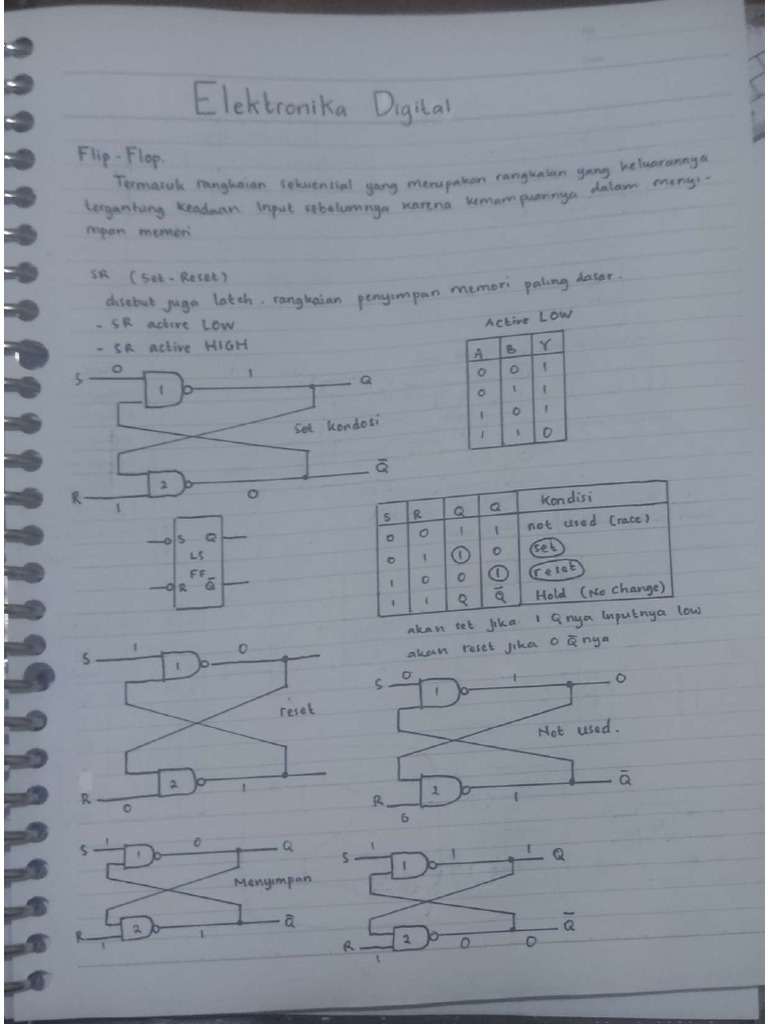 Elektronika Digital
Flip-Flop.
Termasuk rangkaian sekuensial yang merupakan rangkaian yang keluarannya
tergantung keadaan input sebelumnya karena kemampuannya dalam menyi-
mpan memori
SR (Set-Reset)
disebut juga latch. rangkaian penyimpan memori paling dasar.
- SR active LOW
- SR active HIGH
Active LOW
A B Y
0 0 1
0 1 1
1 0 1
1 1 0
S 0 1 1 Q
Set kondosi
R 1 2 0 Q̅
S Q
LS
FF
R Q̅
S R Q Q Kondisi
0 0 1 1 not used (race)
0 1 1 0 set
1 0 0 1 reset
1 1 Q Q̅ Hold (No Change)
akan set jika 1 Qnya inputnya low
akan reset jika 0 Q̅nya
S 1 1 0
reset
R 0 2 1
S 0 1 1 0
Not used.
R 0 2 1 Q̅
S 1 1 0 Q
Menyimpan
R 1 2 1 Q̅
S 1 1 1 1 Q
R 1 2 0 0 Q̅